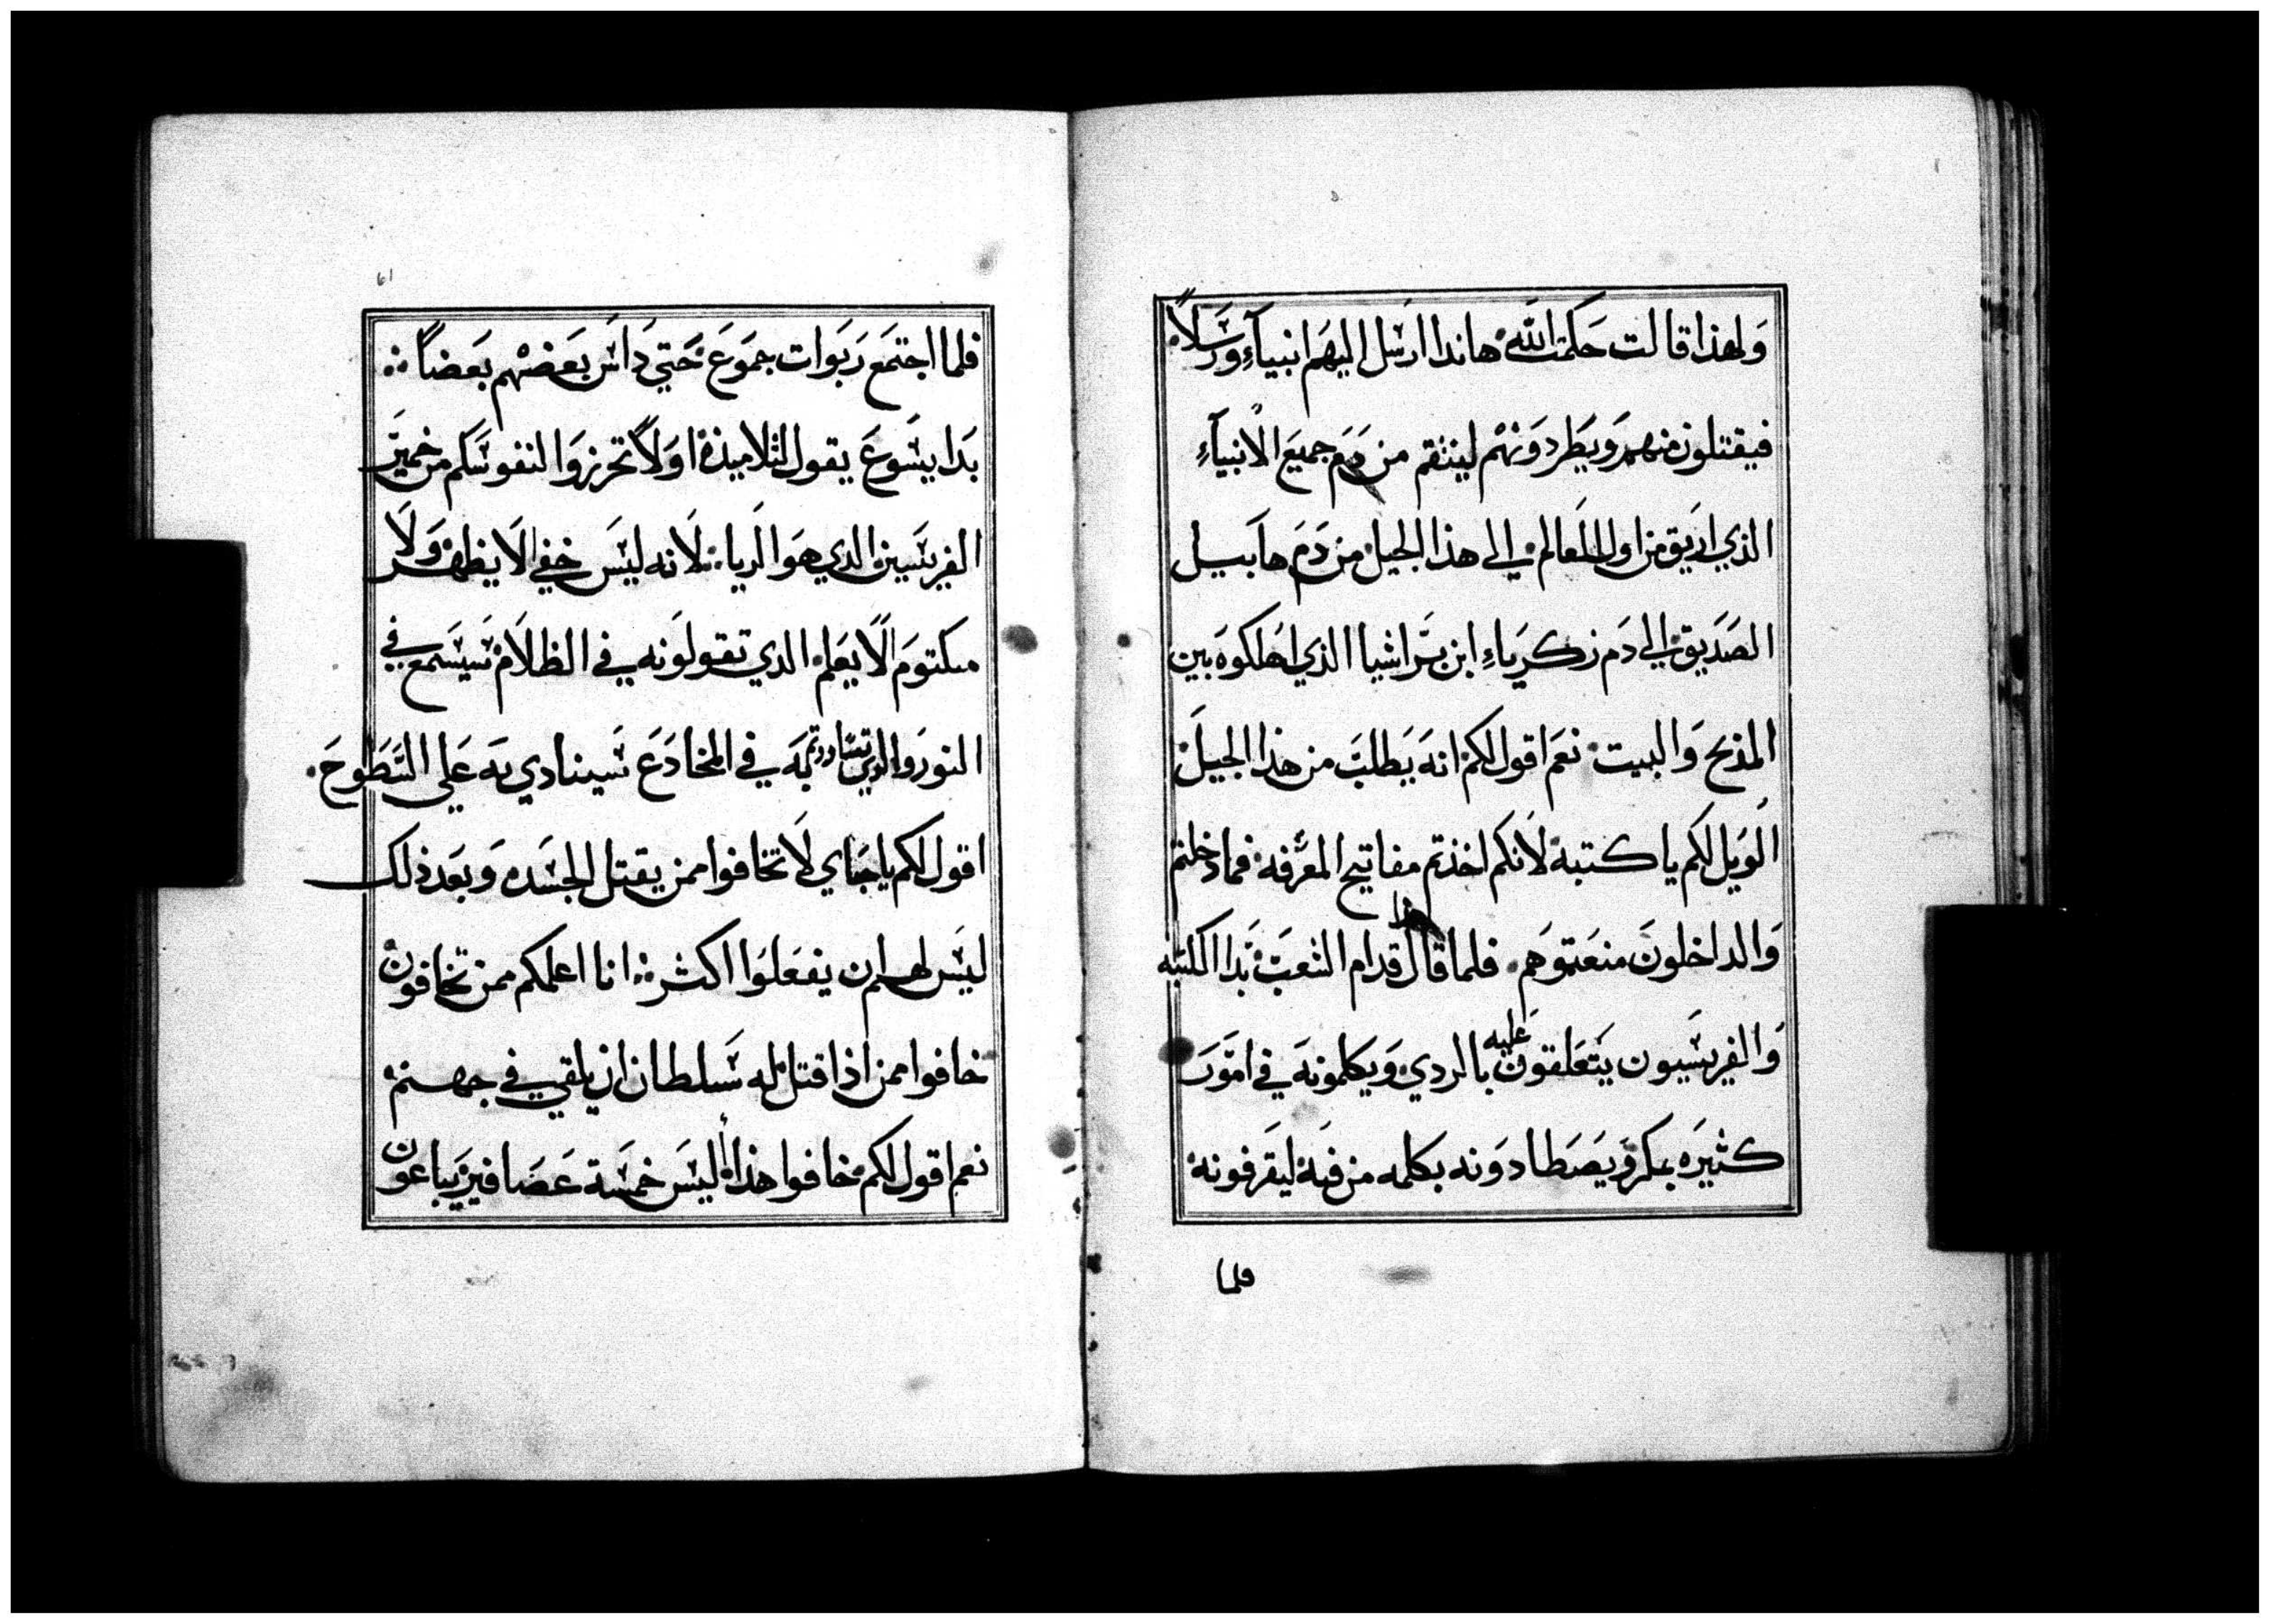 ولهذا قالت حكمت الله هاندا ارسل اليهم انبيآء ورسلاً
فيقتلون منهم ويطردونهم لينتقم من دم جميع الانبيآء
الذي اريق من اول العالم الي هذا الجيل من دم هابيل
الصديق الي دم زكرياء ابن براشيا الذي اهلكوه بين
المذبح والبيت نعم اقول لكم انه يطلب من هذا الجيل
الويل لكم يا كتبة لانكم اخذتم مفاتيح المعرفه فما دخلتم
والداخلون منعتموهم فلما قال هذا قدام الشعب بدا الكتبه
والفريسيون يتعلقون عليه بالردي ويكلمونه في امور
كثيره بمكر ويصطادونه بكلمه من فيه ليقرفونه
فلما
61
فلما اجتمع ربوات جموع حتي داس بعضهم بعضاً
بدا يسوع يقول لتلاميذه اولاً تحرزوا لنفوسكم من خمير
الفريسين الدي هو الريا لانه ليس خفي الا يظهر ولا
مكتوم الا يعلم الدي تقولونه في الظلام سيسمع في
النور والدي تساررتم به في المخادع سينادي به علي السطوح
اقول لكم يا احباي لا تخافوا ممن يقتل الجسده وبعد ذلك
ليس لهم ان يفعلوا اكثر انا اعلمكم ممن تخافون
خافوا ممن اذا قتل له سلطان ان يلقي في جهنم
نعم اقول لكم خافوا هذا أليس خمسة عصافير يباعون